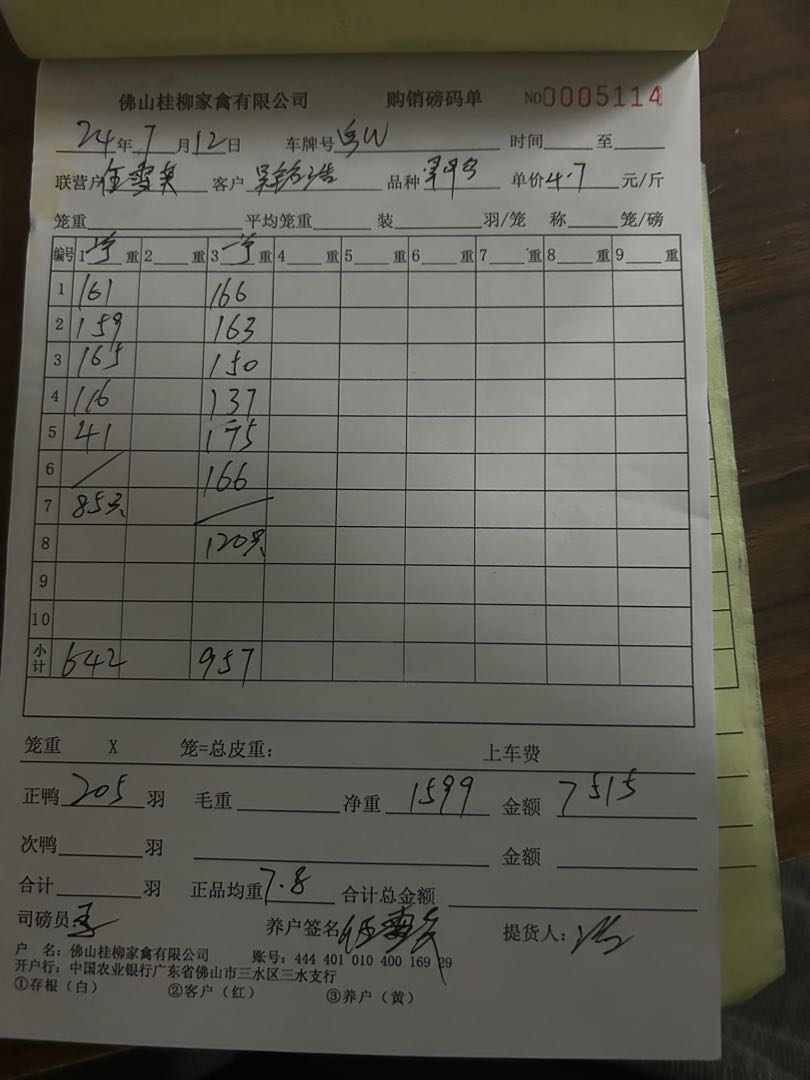 佛山桂柳家禽有限公司 购销磅码单 NO0005114
24年7月12日 车牌号 时间 至
联营户任雪英 客户 品种 单价4.7元/斤
笼重 平均笼重 装 羽/笼 称 笼/磅
编号 1 重 2 重 3 重 4 重 5 重 6 重 7 重 8 重 9 重
1 161 166
2 159 163
3 165 150
4 116 137
5 41 175
6 166
7 85只
8 120只
9
10
小计 642 957
笼重 X 笼=总皮重: 上车费
正鸭205羽 毛重 净重1599 金额7515
次鸭 羽 金额
合计 羽 正品均重7.8 合计总金额
司磅员: 养户签名任雪英 提货人:
户 名: 佛山桂柳家禽有限公司 账号: 444 401 010 400 169 29
开户行: 中国农业银行广东省佛山市三水区三水支行
①存根(白) ②客户(红) ③养户(黄)